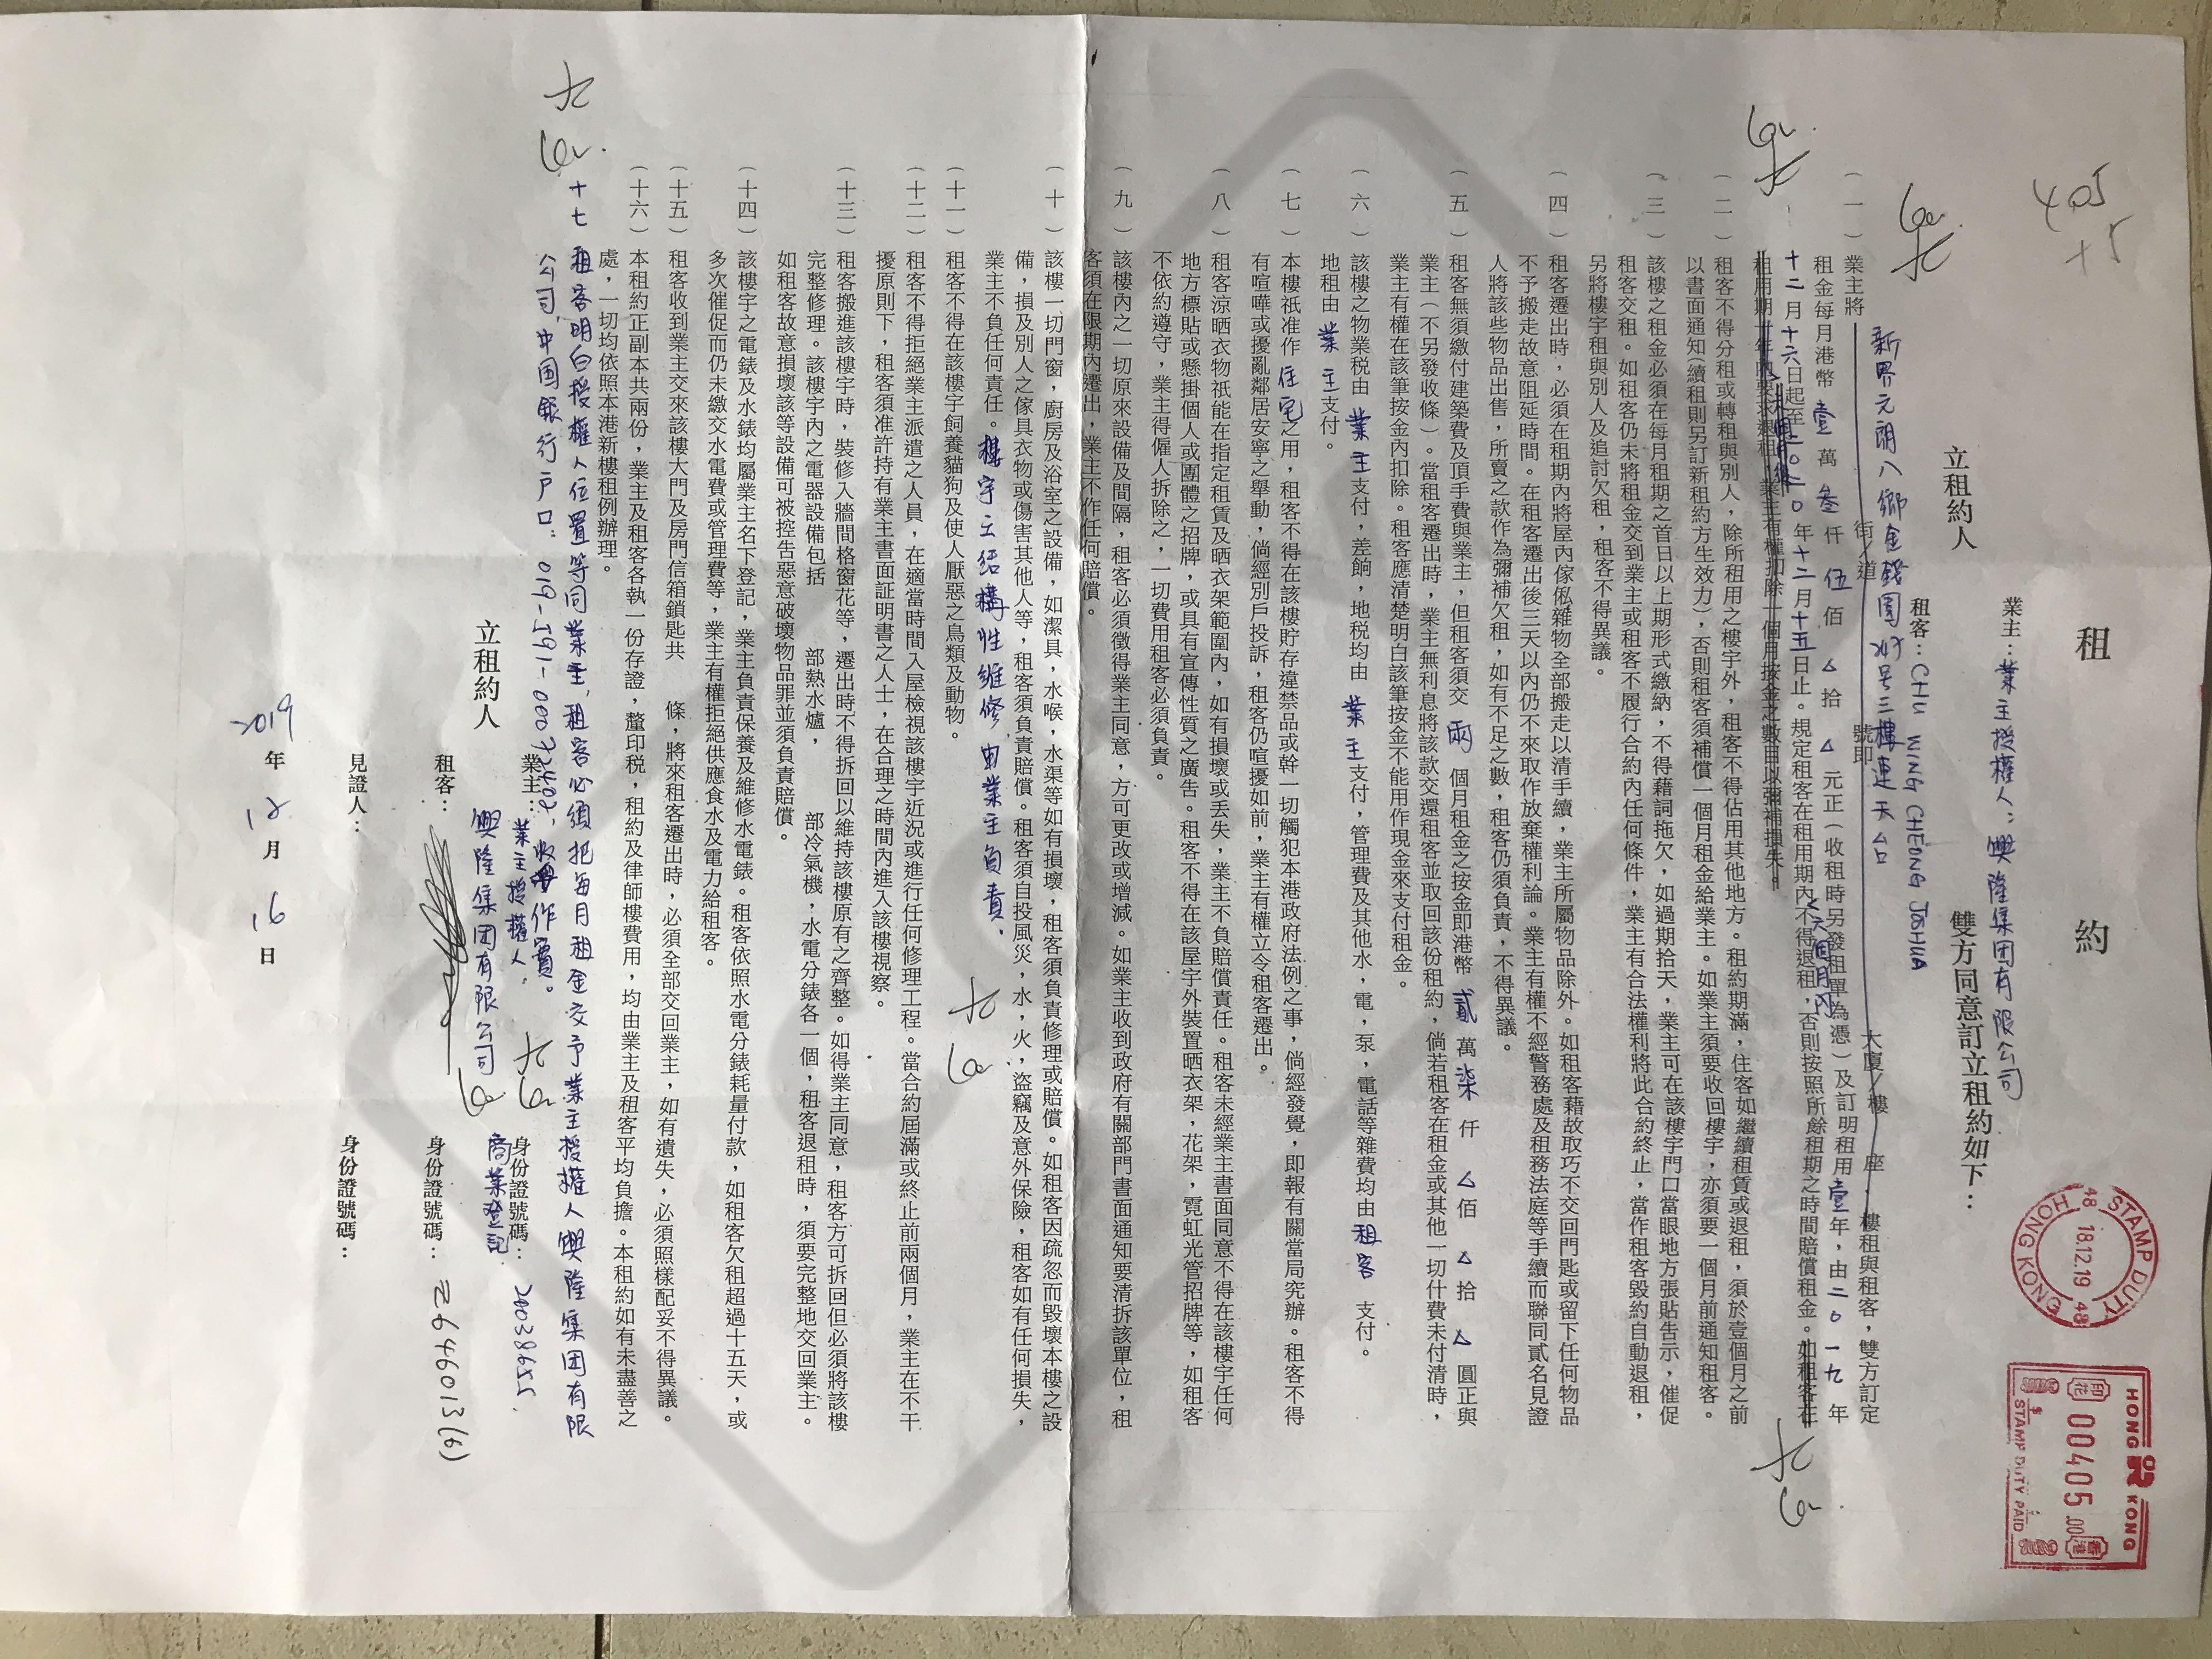 405
+5
租約
業主：業主授權人：興隆集团有限公司
立租約人 雙方同意訂立租約如下：
租客：CHU WING CHEONG JOSHUA
新界元朗八鄉金錢圍 号三樓連天台
（一）業主將 街/道 號即 大廈/樓 座 樓租與租客，雙方訂定
租金每月港幣壹萬叁仟伍佰△拾△元正（收租時另發租單為憑）及訂明租用壹年，由二〇一九年
十二月十六日起至二〇二〇年十二月十五日止。規定租客在租用期內不得退租，否則按照所餘租期之時間賠償租金。如租客在
六個月內
租用期 年內要求退租，業主有權扣除一個月按金之數目以彌補損失
（二）租客不得分租或轉租與別人，除所租用之樓宇外，租客不得佔用其他地方。租約期滿，住客如繼續租賃或退租，須於壹個月之前
以書面通知（續租則另訂新租約方生效力），否則租客須補償一個月租金給業主。如業主須要收回樓宇，亦須要一個月前通知租客。
（三）該樓之租金必須在每月租期之首日以上期形式繳納，不得藉詞拖欠，如過期拾天，業主可在該樓宇門口當眼地方張貼告示，催促
租客交租。如租客仍未將租金交到業主或租客不履行合約內任何條件，業主有合法權利將此合約終止，當作租客毀約自動退租，
另將樓宇租與別人及追討欠租，租客不得異議。
（四）租客遷出時，必須在租期內將屋內傢俬雜物全部搬走以清手續，業主所屬物品除外。如租客藉故取巧不交回門匙或留下任何物品
不予搬走故意阻延時間。在租客遷出後三天以內仍不來取作放棄權利論。業主有權不經警務處及租務法庭等手續而聯同貳名見證
人將該些物品出售，所賣之款作為彌補欠租，如有不足之數，租客仍須負責，不得異議。
（五）租客無須繳付建築費及頂手費與業主，但租客須交兩個月租金之按金即港幣貳萬柒仟△佰△拾△圓正與
業主（不另發收條）。當租客遷出時，業主無利息將該款交還租客並取回該份租約，倘若租客在租金或其他一切什費未付清時，
業主有權在該筆按金內扣除。租客應清楚明白該筆按金不能用作現金來支付租金。
（六）該樓之物業稅由業主支付，差餉，地稅均由業主支付，管理費及其他水，電，泵，電話等雜費均由租客支付。
地租由業主支付。
（七）本樓祇准作住宅之用，租客不得在該樓貯存違禁品或幹一切觸犯本港政府法例之事，倘經發覺，即報有關當局究辦。租客不得
有喧嘩或擾亂鄰居安寧之舉動，倘經別戶投訴，租客仍喧擾如前，業主有權立令租客遷出。
（八）租客涼晒衣物祇能在指定租賃及晒衣架範圍內，如有損壞或丟失，業主不負賠償責任。租客未經業主書面同意不得在該樓宇任何
地方標貼或懸掛個人或團體之招牌，或具有宣傳性質之廣告。租客不得在該屋宇外裝置晒衣架，花架，霓虹光管招牌等，如租客
不依約遵守，業主得僱人拆除之，一切費用租客必須負責。
（九）該樓內之一切原來設備及間隔，租客必須徵得業主同意，方可更改或增減。如業主收到政府有關部門書面通知要清拆該單位，租
客須在限期內遷出，業主不作任何賠償。
（十）該樓一切門窗，廚房及浴室之設備，如潔具，水喉，水渠等如有損壞，租客須負責修理或賠償。如租客因疏忽而毀壞本樓之設
備，損及別人之傢具衣物或傷害其他人等，租客須負責賠償。租客須自投風災，水，火，盜竊及意外保險，租客如有任何損失，
業主不負任何責任。樓宇之结構性維修由業主負責。
（十一）租客不得在該樓宇飼養貓狗及使人厭惡之鳥類及動物。
（十二）租客不得拒絕業主派遣之人員，在適當時間入屋檢視該樓宇近況或進行任何修理工程。當合約屆滿或終止前兩個月，業主在不干
擾原則下，租客須准許持有業主書面証明書之人士，在合理之時間內進入該樓視察。
（十三）租客搬進該樓宇時，裝修入牆間格窗花等，遷出時不得拆回以維持該樓原有之齊整。如得業主同意，租客方可拆回但必須將該樓
完整修理。該樓宇內之電器設備包括 部熱水爐， 部冷氣機，水電分錶各一個，租客退租時，須要完整地交回業主。
如租客故意損壞該等設備可被控告惡意破壞物品罪並須負責賠償。
（十四）該樓宇之電錶及水錶均屬業主名下登記，業主負責保養及維修水電錶。租客依照水電分錶耗量付款，如租客欠租超過十五天，或
多次催促而仍未繳交水電費或管理費等，業主有權拒絕供應食水及電力給租客。
（十五）租客收到業主交來該樓大門及房門信箱鎖匙共 條，將來租客遷出時，必須全部交回業主，如有遺失，必須照樣配妥不得異議。
（十六）本租約正副本共兩份，業主及租客各執一份存證，釐印稅，租約及律師樓費用，均由業主及租客平均負擔。本租約如有未盡善之
處，一切均依照本港新樓租例辦理。
十七 租客明白授權人位置等同業主，租客必須把每月租金交予業主授權人興隆集团有限
公司，中国銀行户口：019-591-0007240 ，收 作實。
業主：業主授權人， 身份證號碼：20038655
立租約人 興隆集团有限公司 商業登記
租客： 身份證號碼：Z646013(6)
見證人： 身份證號碼：
2019年12月16日
STAMP DUTY
48 18.12.19 48
HONG KONG
HONG KONG
印花 $ 00405.00 香港
STAMP DUTY PAID